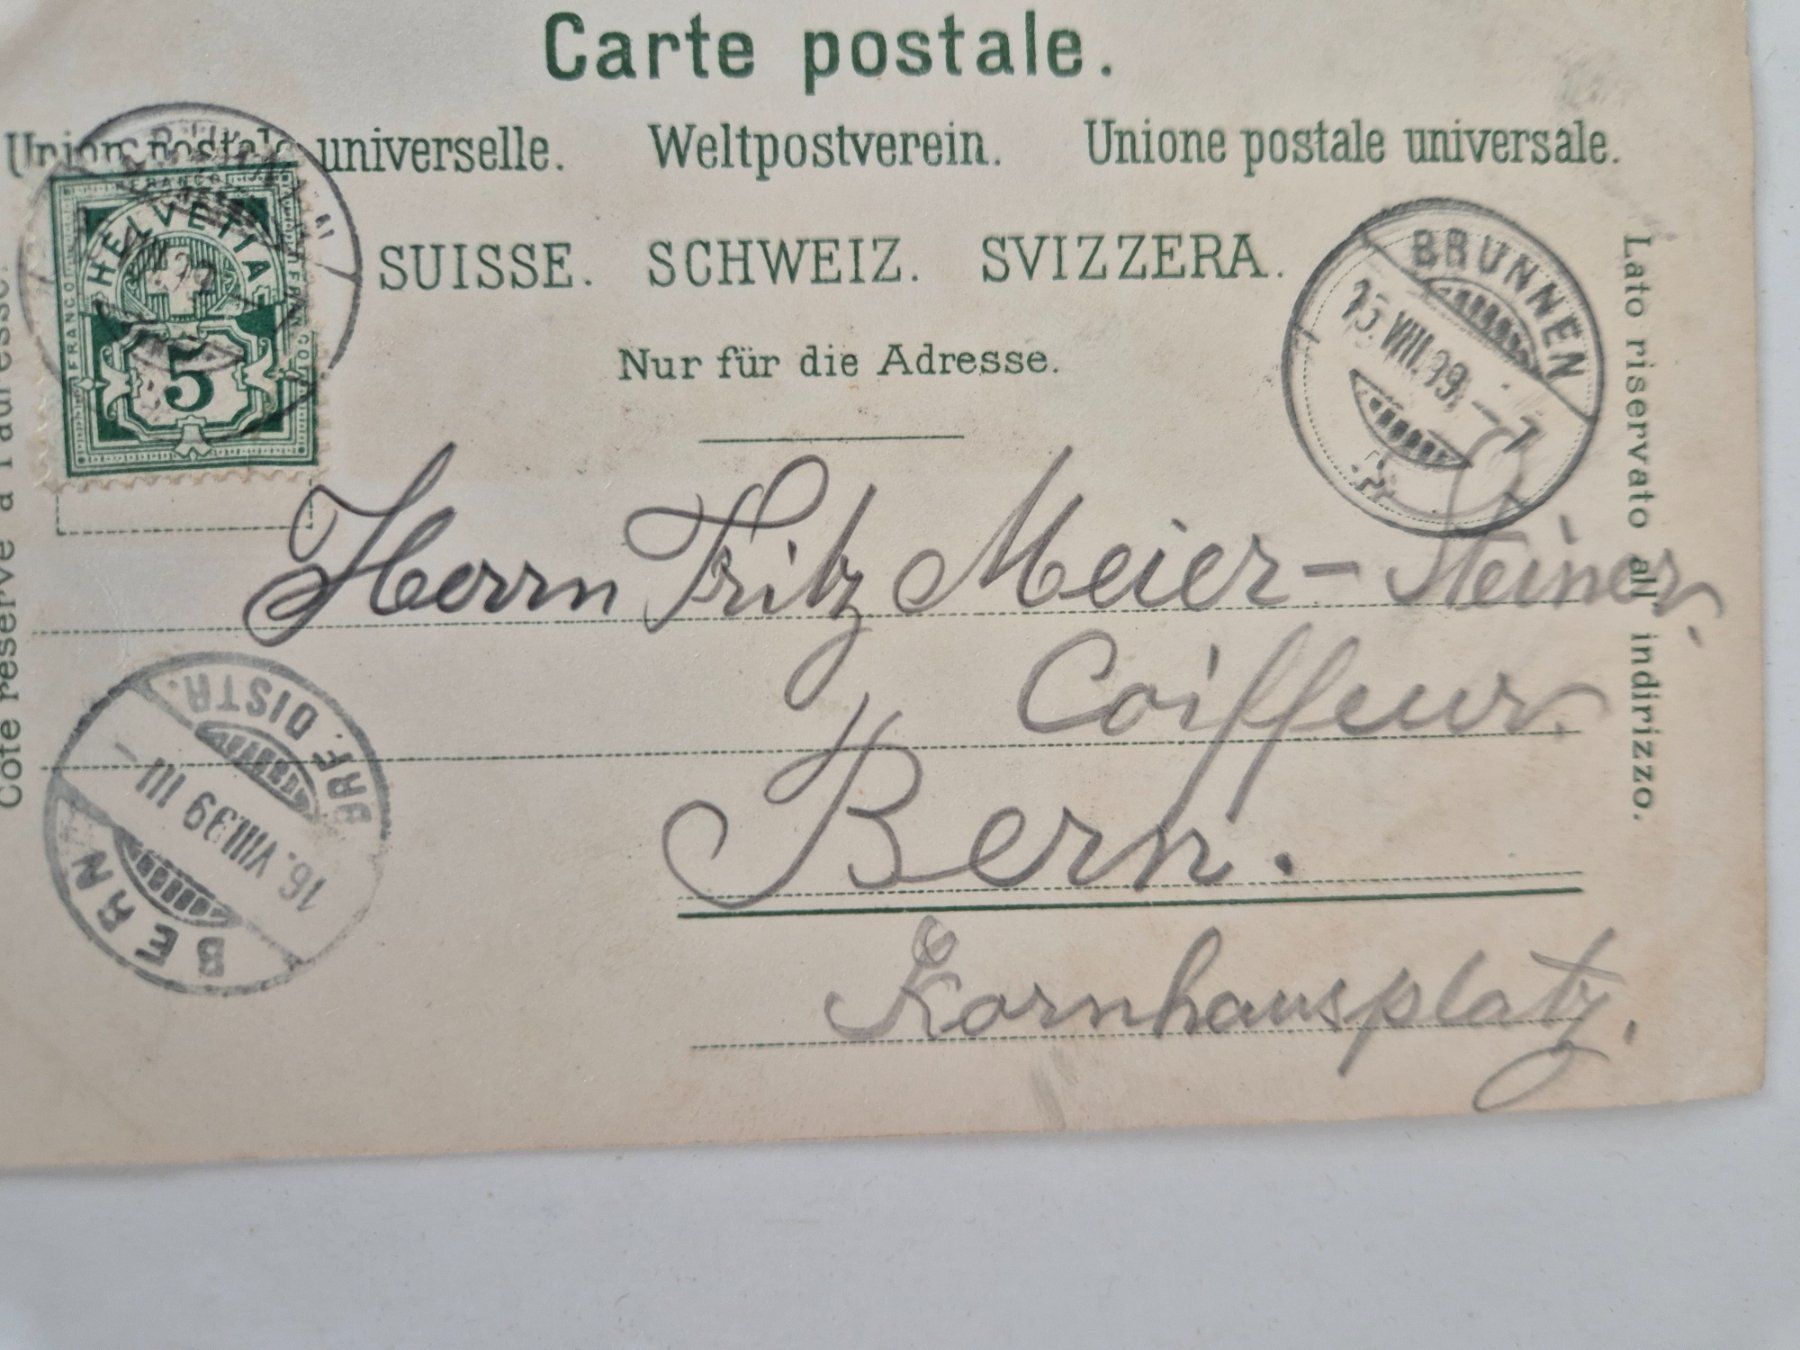 Carte postale.
Union postale universelle. Weltpostverein. Unione postale universale.
SUISSE. SCHWEIZ. SVIZZERA.
Nur für die Adresse.
FRANCO
HELVETIA
FRANCO
5
BRUNNEN
15.VIII.99.–7
Herrn Fritz Meier-Steiner.
Coiffeur.
Bern.
Kornhausplatz.
BERN
16.VIII.99 III–
BRF. DISTR.
Côté réservé à l'adresse.
Lato riservato all indirizzo.